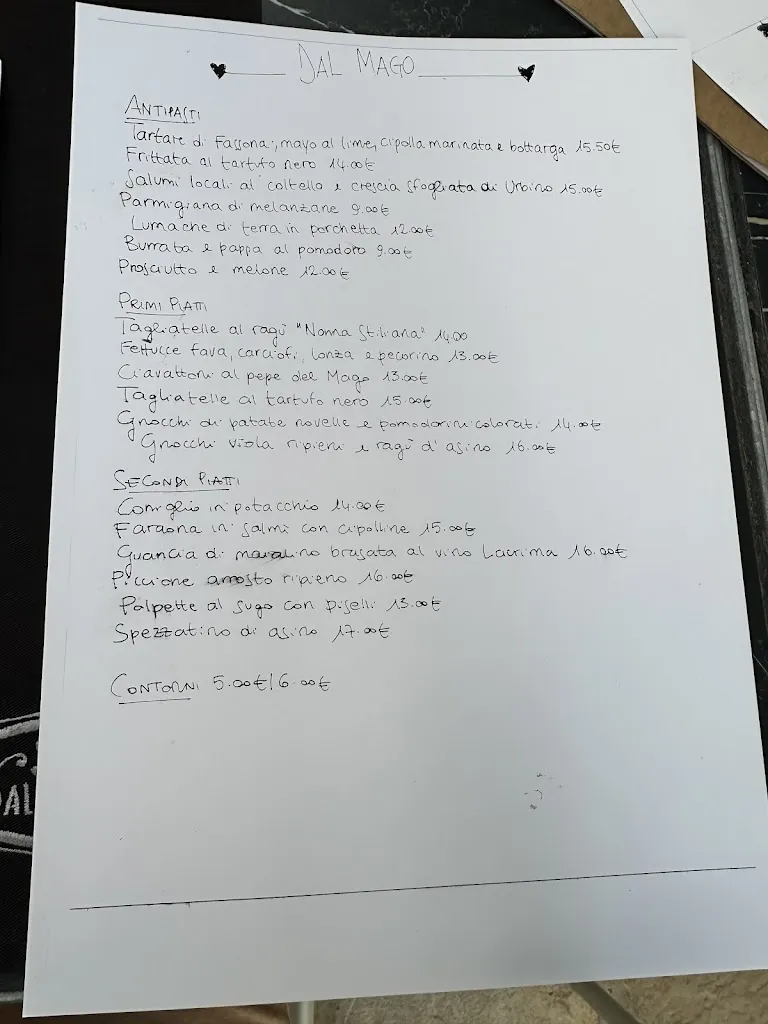 DAL MAGO
ANTIPASTI
Tartare di Fassona, mayo al lime, cipolla marinata e bottarga 15.50€
Frittata al tartufo nero 14.00€
Salumi locali al coltello e crescia sfogliata di Urbino 15.00€
Parmigiana di melanzane 9.00€
Lumache di terra in porchetta 12.00€
Burrata e pappa al pomodoro 9.00€
Prosciutto e melone 12.00€
PRIMI PIATTI
Tagliatelle al ragù "Nonna Stiliana" 14.00
Fettucce fava, carciofi, lonza e pecorino 13.00€
Ciavattoni al pepe del Mago 13.00€
Tagliatelle al tartufo nero 15.00€
Gnocchi di patate novelle e pomodorini colorati 14.00€
Gnocchi viola ripieni e ragù d'asino 16.00€
SECONDI PIATTI
Coniglio in potacchio 14.00€
Faraona in salmì con cipolline 15.00€
Guancia di maialino brasata al vino Lacrima 16.00€
Piccione arrosto ripieno 16.00€
Polpette al sugo con piselli 13.00€
Spezzatino di asino 17.00€
CONTORNI 5.00€/6.00€